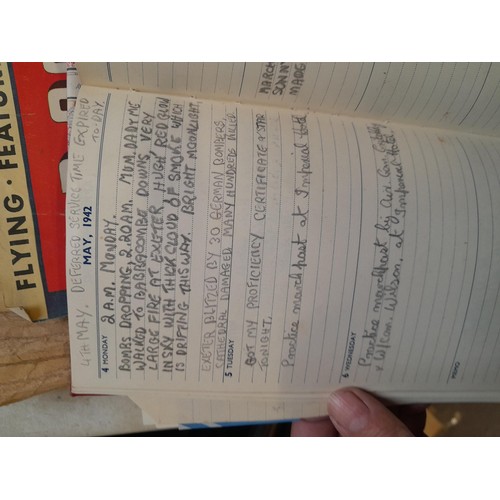 FLYING · FEATUR
4TH MAY. DEFERRED SERVICE TIME EXPIRED
TO-DAY.
MAY, 1942
4 MONDAY
2 A.M. MONDAY.
BOMBS DROPPING, 2.20 A.M. MUM, DADY, ME
WALKED TO BABBACOMBE DOWNS VERY
LARGE FIRE AT EXETER, HUGH RED GLOW
IN SKY WITH THICK CLOUD OF SMOKE WHICH
IS DRIFTING THIS WAY. BRIGHT MOONLIGHT.
EXETER BLITZED BY 30 GERMAN BOMBERS,
CATHEDRAL DAMAGED MANY HUNDREDS KILLED
5 TUESDAY
GOT MY PROFICIENCY CERTIFICATE & STAR
TONIGHT.
Practice march past at Imperial Hotel
6 WEDNESDAY
Practice marchpast by Air. Com.
& W/Com. Wilson. at Imperial Hotel.
MEMO
MARCH
SUNNY
MADE